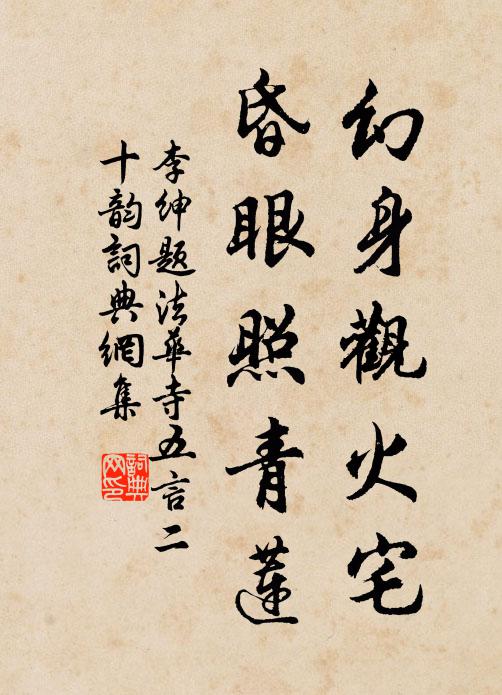 幻身觀火宅
昏眼照青蓮
李紳題法華寺五言二
十韵詞典網集
詞典
网印